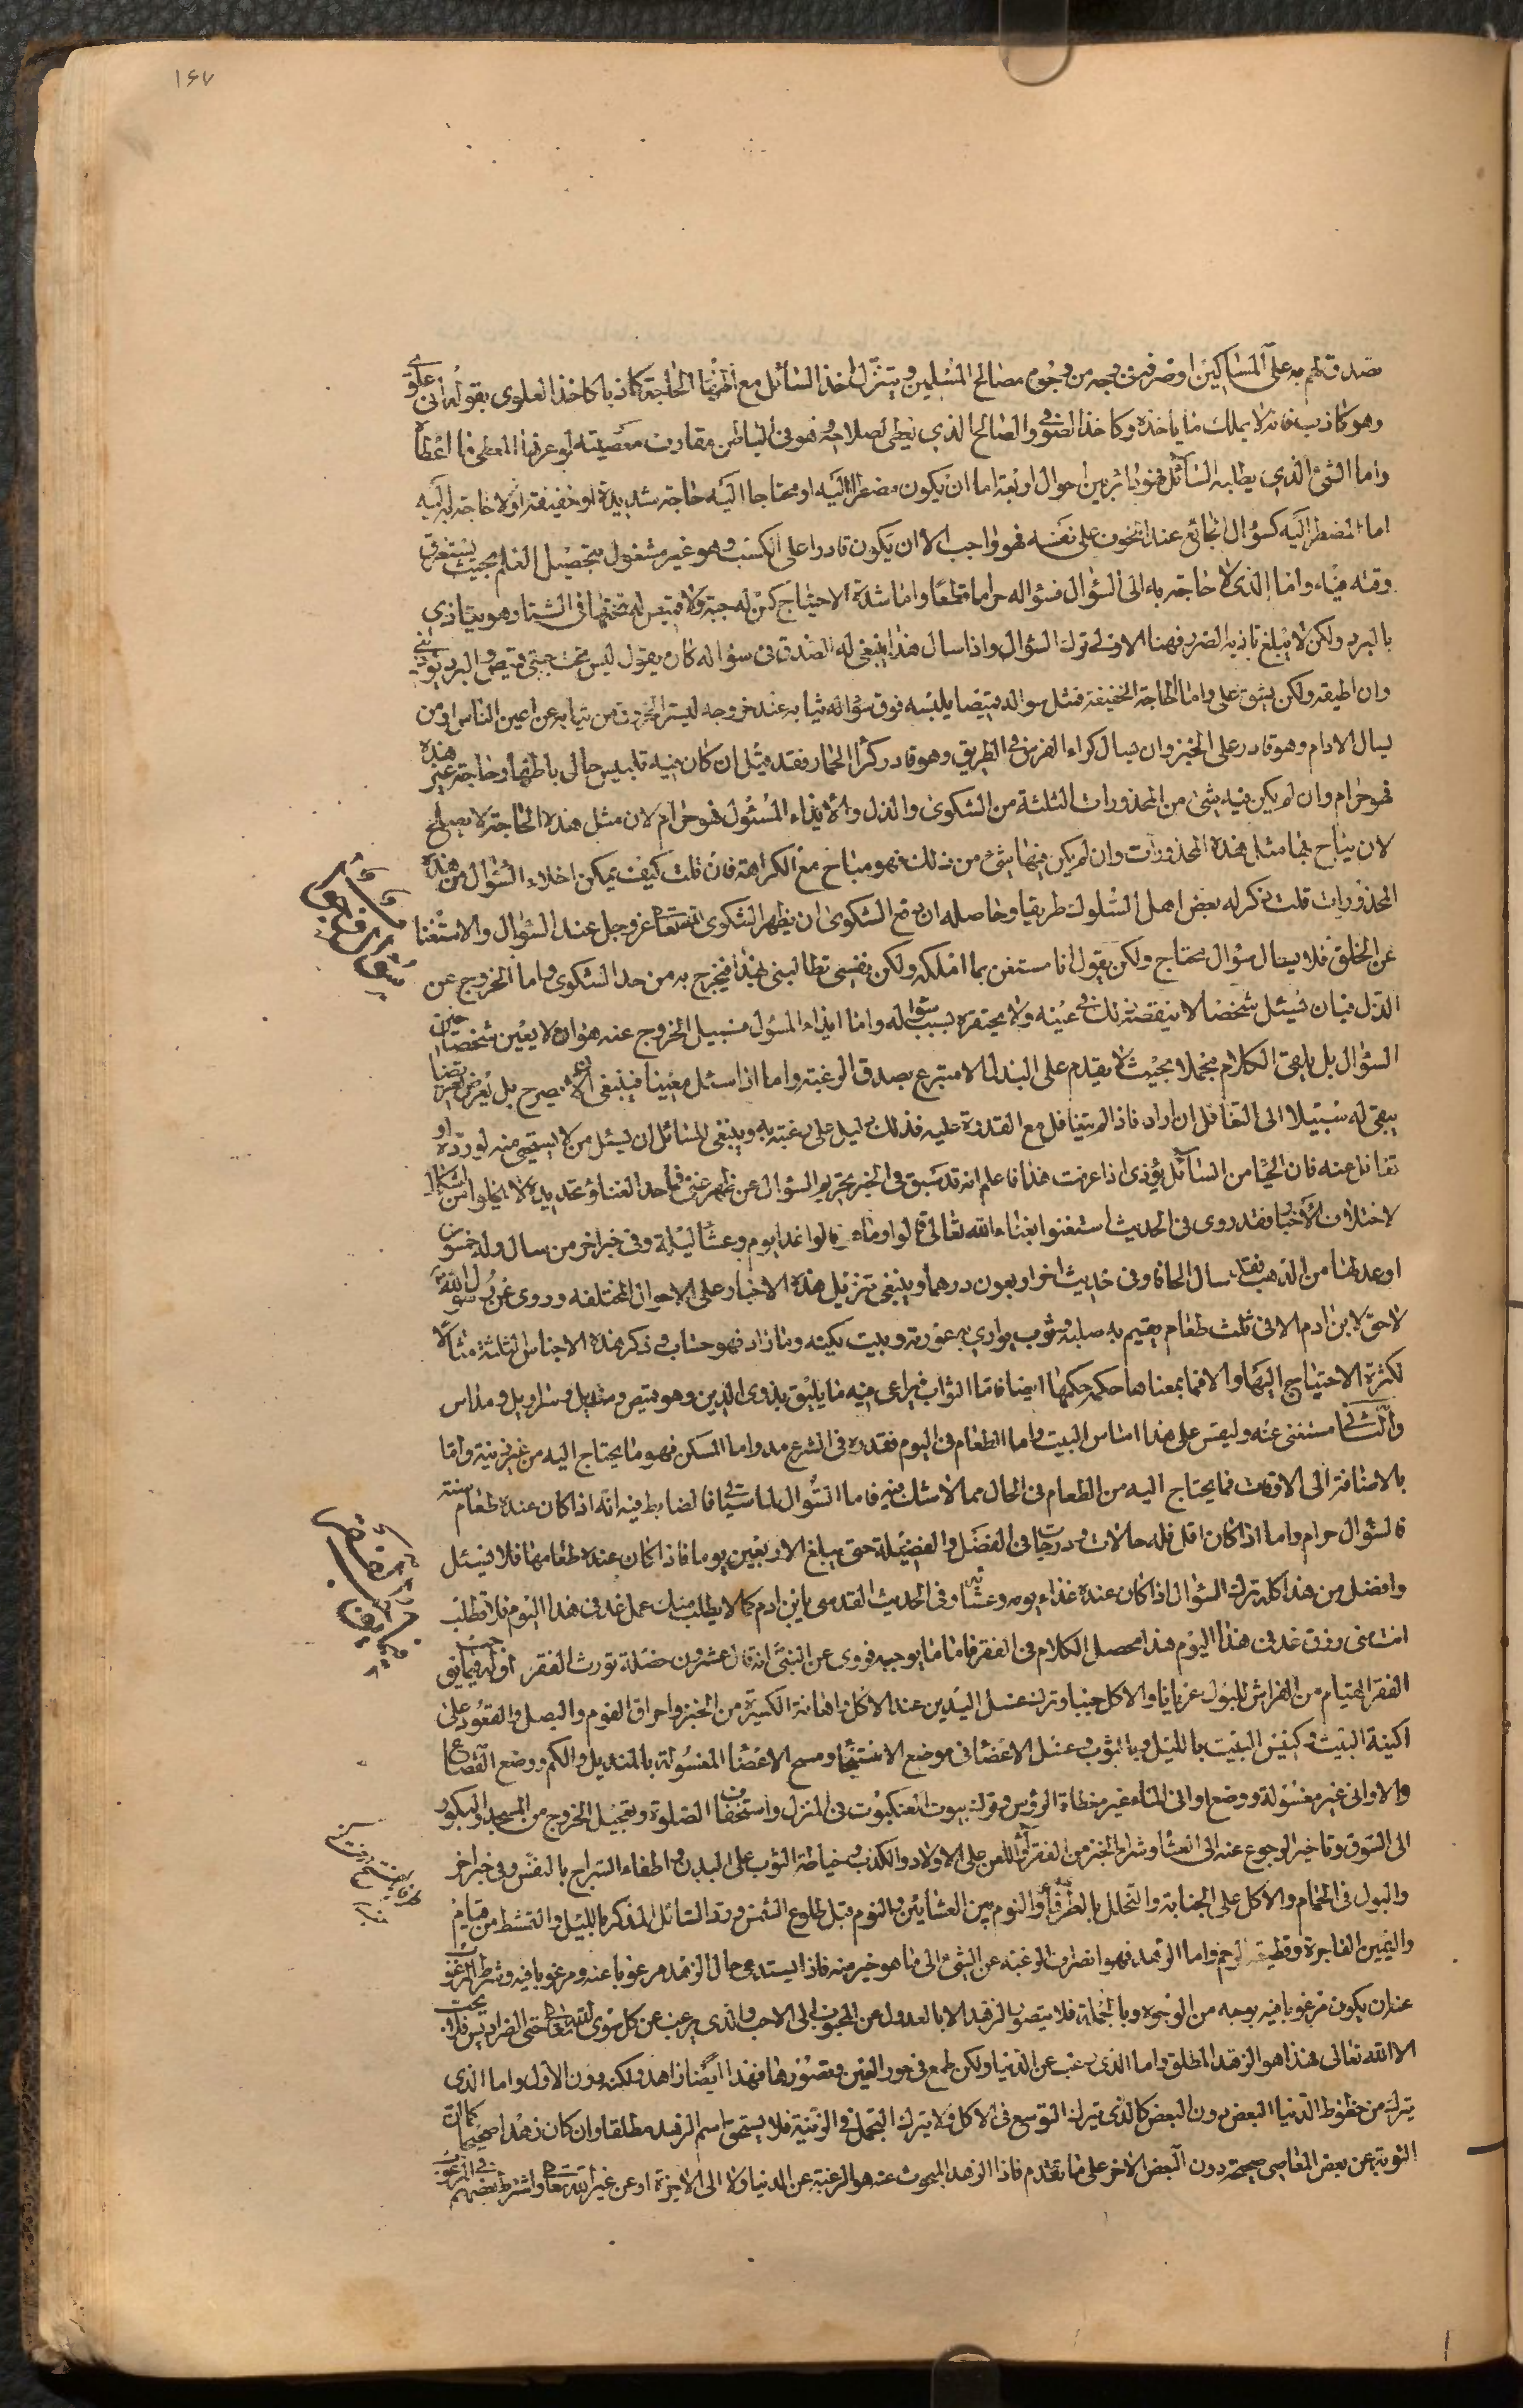 ١٤٧
صدقتهم به على المساكين او صرفه في وجه من وجوه مصالح المسلمين ويتنزل اخذ السائل مع اظهار الحاجة كاذبا كاخذ العلوي بقوله اني علوي
وهو كاذب فانه لا يملك ما ياخذه وكاخذ الصوفي والصالح الذي يعطى لصلاحه وهو في الباطن مقارف معصيته لو عرفها المعطي لما اعطاه
واما الشئ الذي يطلبه السائل فهو دائر بين احوال اربعة اما ان يكون مضطرا اليه او محتاجا اليه حاجة شديدة او خفيفة او لا حاجة له اليه
اما المضطر اليه كسؤال الجائع عند الخوف على نفسه فهو واجب الا ان يكون قادرا على الكسب وهو غير مشغول بتحصيل العلم بحيث يستغرق
وقته فيه واما الذي لا حاجة به الى السؤال فسؤاله حرام قطعا واما شدة الاحتياج كمن له جبة ولا قميص له تحتها في الشتا وهو يتاذى
بالبرد ولكن لا يبلغ تاذيه الضرر فهنا الاولى ترك السؤال واذا سال هذا ينبغي له الصدق في سؤاله كان يقول ليس تحت جبتي قميص والبرد يؤذيني
وان اطيقه ولكن يشق على واما الحاجة الخفيفة فمثل سواله قميصا يلبسه فوق ثيابه عند خروجه ليستر الخروق من ثيابه عن اعين الناس او من
يسال الادام وهو قادر على الخبز وان يسال كراء الفرس في الطريق وهو قادر كرا الحمار فقد مثل ان كان فيه تلبيس حال باظهار حاجة غير هذه
فهو حرام وان لم يكن فيه شئ من المحذورات الثلثة من الشكوى والذل والايذاء المسئول فهو حرام لان مثل هذه الحاجة لا يصلح
لان يباح بها مثل هذه المحذورات وان لم يكن فيها شئ من ذلك فهو مباح مع الكراهة فان قلت كيف يمكن اخلاء السؤال من هذه
المحذورات قلت ذكر له بعض اهل السلوك طريقا وحاصله ان يدفع الشكوى ان يظهر الشكر لله تعالى عز وجل عند السؤال والاستغنا
عن الخلق فلا يسال سؤال محتاج ولكن يقول انا مستغن بما املكه ولكن نفسي تطالبني بهذا فيخرج به من حد الشكوى واما الخروج عن
الذل فبان يسئل شخصا لا ينقصه ذلك في عينه ولا يحتقره بسبب سؤاله واما ايذاء المسئول فسبيل الخروج عنه هو ان لا يعين شخصا حين
السؤال بل يلقى الكلام مجملا بحيث لا يقدم على البذل الا متبرع بصدق الرغبة واما اذا سئل معينا فينبغي ان لا يصرح بل يعرض تعريضا
يبقى له سبيلا الى التغافل ان اراد فاذا لم يتغافل مع القدرة عليه فذلك دليل على رغبته به وينبغي للسائل ان يسئل من لا يستحيى منه لو رده او
تغافل عنه فان الحيا من السائل يؤذي اذا عرفت هذا فاعلم انه قد سبق في الخبر تحريم السؤال عن ظهر غنى فما حد الغنا وتحديده لا يخلو من اشكال
لاختلاف الاخبار فقد روى في الحديث استغنوا بغناء الله تعالى قالوا وما هو قالوا غدا يوم وعشا ليلة وفي خبر اخر من سال وله خمسون
او عدلها من الذهب فقد سال الحافا وفي حديث اخر اربعون درهما وينبغي تنزيل هذه الاخبار على الاحوال المختلفة وروى عن رسول الله
لا حق لابن ادم الا في ثلث طعام يقيم به صلبه وثوب يواري به عورته وبيت يكنه وما زاد فهو حساب وذكر هذه الاجناس الثلثة مثالا
لكثرة الاحتياج اليها والا فما بمعناها حكمه حكمها ايضا فاما الثواب فيراعى فيه ما يليق بذوي الدين وهو قميص ومنديل وسراويل ومداس
والثاني مستغنى عنه وليقس على هذا اساس البيت واما الطعام في اليوم فقدره في الشرع مد واما المسكن فهو ما يحتاج اليه من غير زينة واما
بالاضافة الى الاوقات فما يحتاج اليه من الطعام في الحال مما لا شك فيه فاما السؤال لما سياتي فالضابط فيه انه اذا كان عنده طعام سنة
فالسؤال حرام واما اذا كان اقل فله حالات ودرجات في الفضل والفضيلة حتى يبلغ الاربعين يوما فاذا كان عنده طعامها فلا يسئل
وافضل من هذا كله ترك السؤال اذا كان عنده غذاء يومه وعشائه وفي الحديث القدسي يا بن ادم كما لا يطلب منك عمل غد في هذا اليوم فلا تطلب
انت مني رزق غد في هذا اليوم هذا محصل الكلام في الفقر فاما ما يوجبه فروى عن النبي انه قال عشرون خصلة تورث الفقر
الفقر القيام من الفراش للبول عريانا والاكل جنبا وترك غسل اليدين عند الاكل واهانة الكسرة من الخبز واحراق الفوم والبصل والقعود على
اكينة البيت وكنس البيت بالليل وبالثوب وغسل الاعضا في موضع الاستنجا ومسح الاعضا المغسولة بالمنديل والكم ووضع القصاع
والاواني غير مغسولة ووضع اواني الماء غير مغطاة الرؤس وترك بيوت العنكبوت في المنزل واستخفاف الصلوة وتعجيل الخروج من المسجد والبكور
الى السوق وتاخير الرجوع عنه الى العشا وشراء الخبز من الفقرا واللعن على الاولاد والكذب وخياطة الثوب على البدن واطفاء السراج بالنفس وفي خبر اخر
والبول في الحمام والاكل على الجنابة والتخلل بالطرفاء والنوم بين العشائين والنوم قبل طلوع الشمس ورد السائل الذكر بالليل والتمشط من قيام
واليمين الفاجرة وقطيعة الرحم واما الزهد فهو انصراف الرغبة عن الشئ الى ما هو خير منه فاذا يستدعى حال الزهد مرغوبا عنه ومرغوبا فيه وشرط المرغوب
عنه ان يكون مرغوبا فيه بوجه من الوجوه وبالجملة فلا يتصور الزهد الا بالعدول عن المحبوب الى الاحب والذي يرغب عن كل سوى الله تعالى حتى الفراديس فلا يحب
الا الله تعالى فهذا هو الزهد المطلق واما الذي رغب عن الدنيا ولكن طمع في حور العين وقصورها فهذا ايضا زاهد ولكن دون الاول واما الذي
يترك من حظوظ الدنيا البعض دون البعض كالذي يترك التوسع في الاكل ولا يترك التجمل في الزينة فلا يستحق اسم الزهد مطلقا وان كان زهدا صحيحا كما ان
التوبة عن بعض المعاصي صحيحة دون البعض الاخر على ما تقدم فاذا الزهد المبحوث عنه هو الرغبة عن الدنيا الى الاخرة او عن غير الله تعالى واشترط بعضهم في المرغوب